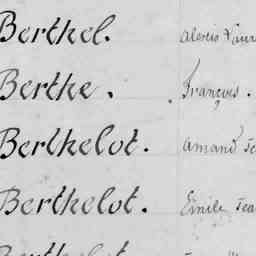 Berthel. Alexis Laur
Berthe. François.
Berthelot. Amand Je
Berthelot. Emile Jea
Berthelot